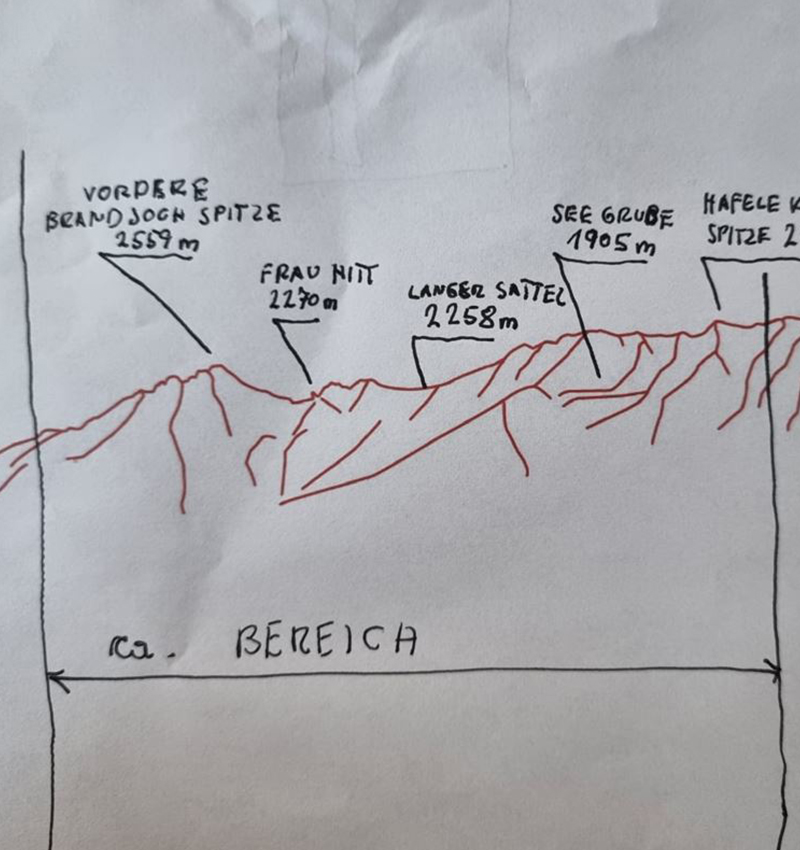 VORDERE
BRANDJOCH SPITZE
2559 m
FRAU HITT
2270 m
LANGER SATTEL
2258 m
SEE GRUBE
1905 m
HAFELE K
SPITZE 2
ca. BEREICH